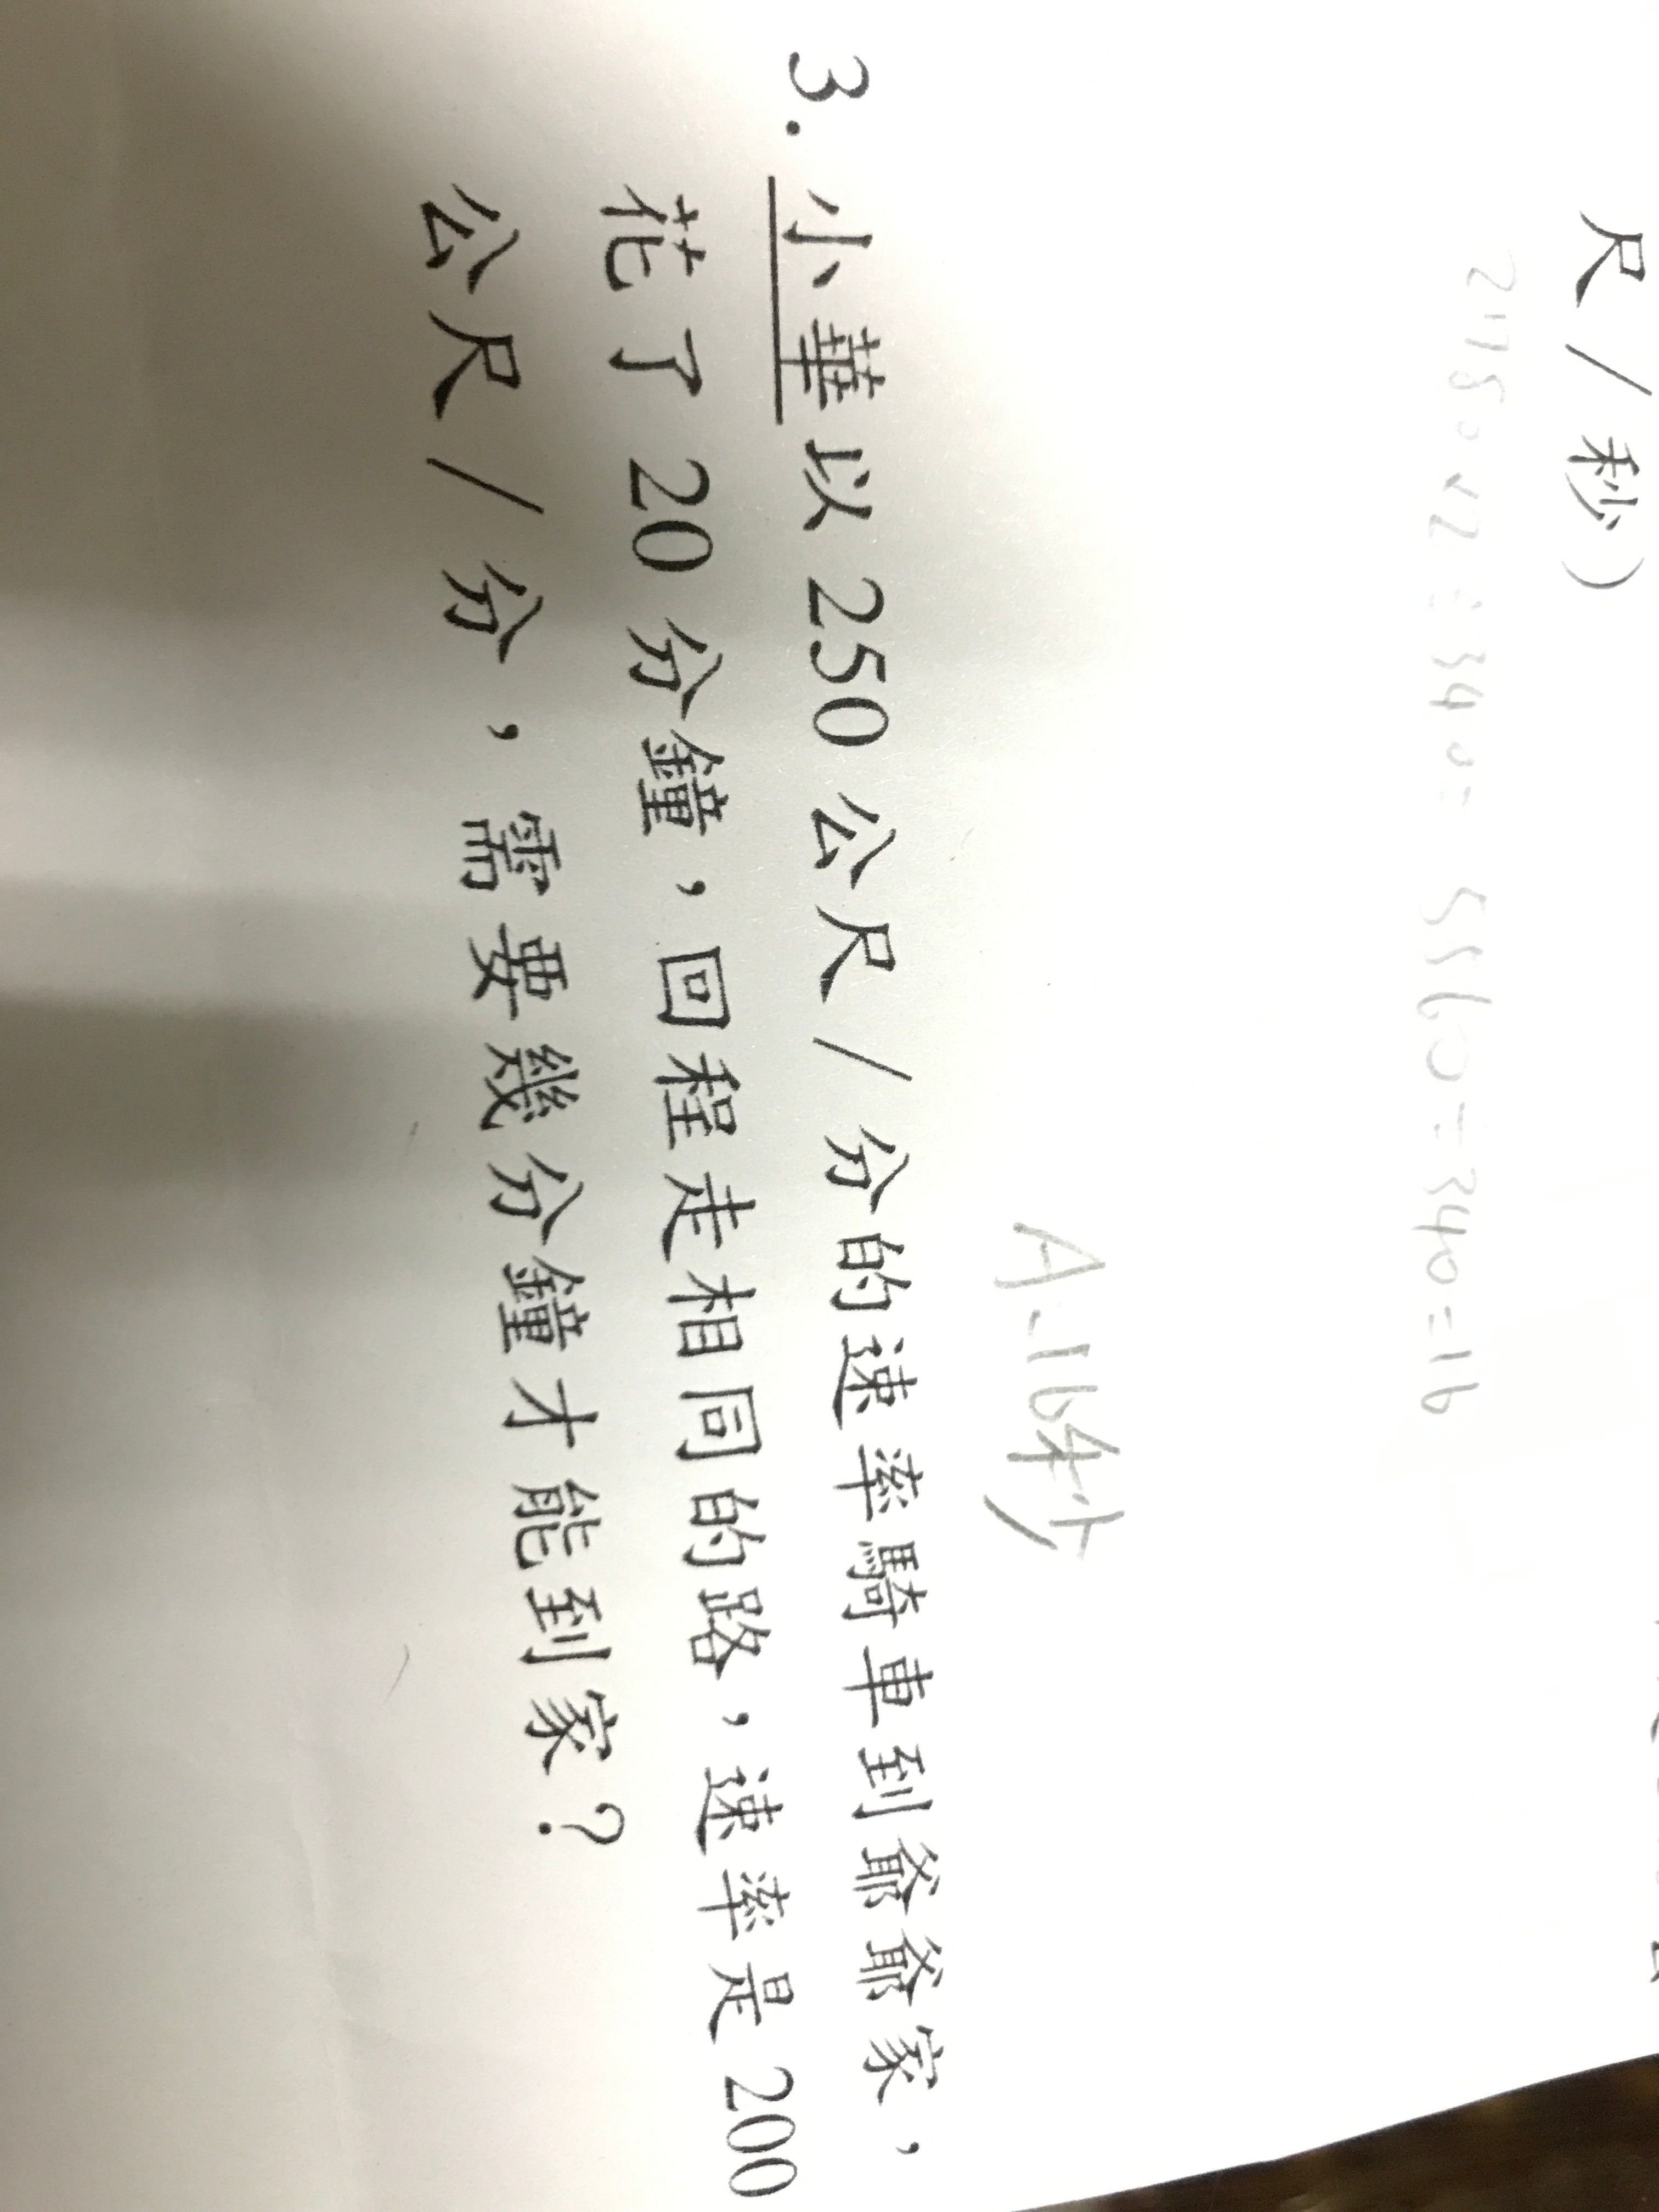 尺/秒)
2780×2=340= 5560÷340=16
A:16秒
3. 小華以 250 公尺/分的速率騎車到爺爺家，
花了 20 分鐘，回程走相同的路，速率是 200
公尺/分，需要幾分鐘才能到家？